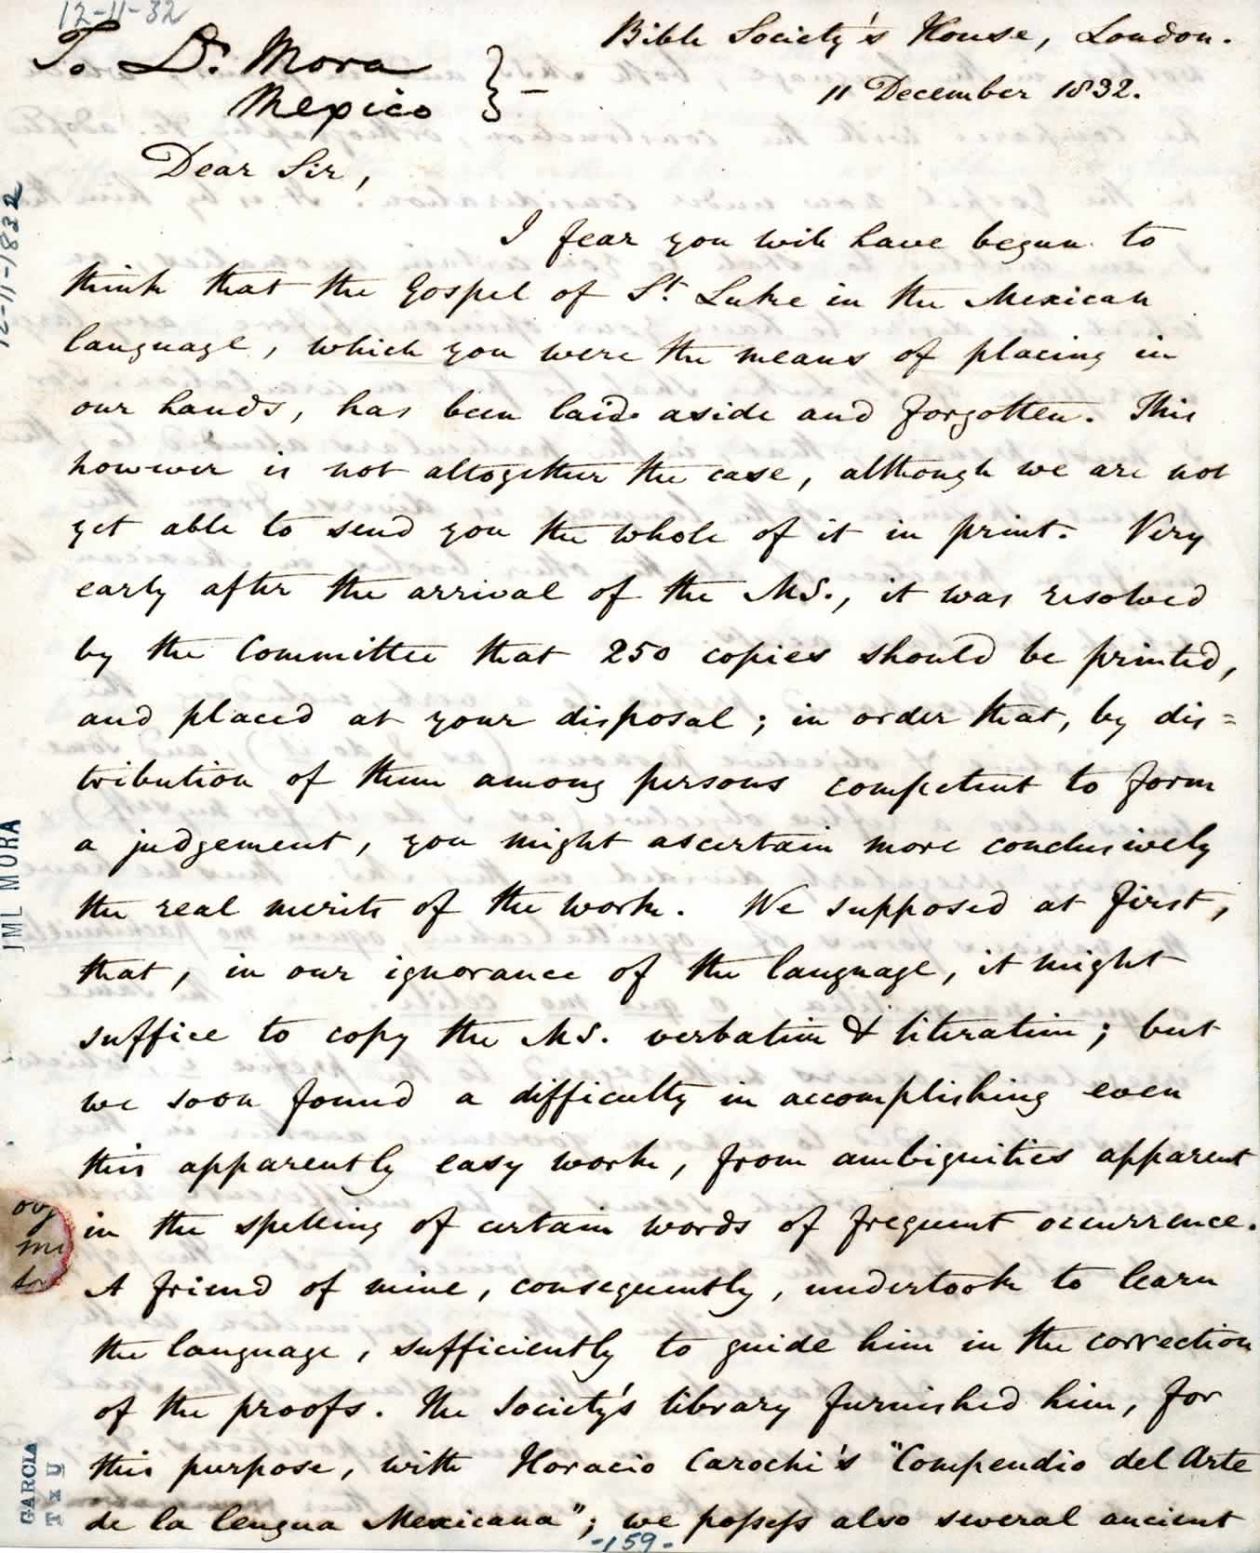 12-11-32
Bible Society's House, London.
To Dr. Mora
Mexico
11 December 1832.
Dear Sir,
I fear you will have begun to
think that the Gospel of St. Luke in the Mexican
language, which you were the means of placing in
our hands, has been laid aside and forgotten. This
however is not altogether the case, although we are not
yet able to send you the whole of it in print. Very
early after the arrival of the MS., it was resolved
by the Committee that 250 copies should be printed,
and placed at your disposal; in order that, by dis=
tribution of them among persons competent to form
a judgement, you might ascertain more conclusively
the real merits of the work. We supposed at first,
that, in our ignorance of the language, it might
suffice to copy the MS. verbatim & literatim; but
we soon found a difficulty in accomplishing even
this apparently easy work, from ambiguities apparent
in the spelling of certain words of frequent occurrence.
A friend of mine, consequently, undertook to learn
the language, sufficiently to guide him in the correction
of the proofs. The Society's library furnished him, for
this purpose, with Horacio Carochi's "Compendio del Arte
de la lengua Mexicana"; we possess also several ancient
-159-
12-11-1832
JML MORA
GARCIA
TxU